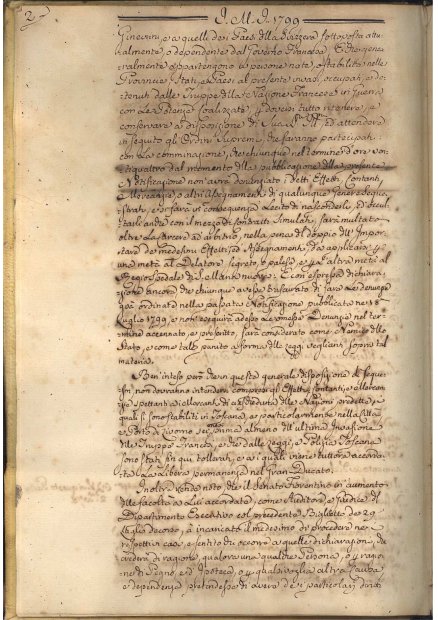 2
I. M. I. 1799
Ginevrini, e a quelli dei Paesi della Svizzera sottoposta attu-
almente, o dependente dal Governo Francese. E che gene-
ralmente appartengono a persone nate, o stabilite nelle
Provincie, Stati, e Paesi al presente invasi, occupati, e de-
tenuti dalle Truppe della Nazione Francese in Guerra
con le Potenze Coalizzate, e doversi tutto ritenere, e
conservare a disposizione di Sua ed attendere
in seguito gli Ordini Supremi, che saranno partecipati
con la comminazione, che chiunque nel termine d'ore ven-
tiquattro dal momento della pubblicazione della presente
Notificazione non avrà denunziato detti Effetti, Contanti,
Mercanzie, o altri assegnamenti di qualunque Genere seque-
strati, e si farà in conseguenza lecito di nasconderli, ed occul-
tarli anche con il mezzo di Contratti Simulati, sarà multato
oltre la Carcere ad arbitrio, nella pena del doppio dell'Impor-
tare de' medesimi Effetti, ed Assegnamenti da applicarsi
una metà al Delatore segreto, o palese, e l'altra metà al
Regio Spedale di S. Maria Nuova: E con espressa dichiara-
zione ancora che chiunque avesse trascurato di fare le denunzie
già ordinate nella passata Notificazione pubblicata ne' 18
Luglio 1799, e non eseguirà adesso le omesse Denunzie nel ter-
mine accennato, e prescritto, sarà considerato come Nemico dello
Stato, e come tale punito a forma delle Leggi veglianti sopra tal
materia.
Ben inteso però che in questa generale disposizione di Seque-
stri non dovranno intendersi compresi gli Effetti, contanti, e Mercan-
zie spettanti a Mercanti di ciascheduna delle Nazioni predette, i
quali si sono stabiliti in Toscana, e particolarmente nella Città
e Porto di Livorno sei anni almeno dell'ultima Invasione
delle Truppe Francesi, e che dalle Leggi, e Polizia Toscana
sono stati fin qui tollerati, e ai quali viene tuttora accorda-
ta la libera permanenza nel Gran Ducato.
Inoltre rende noto, che il Senato Fiorentino in aumento
delle facoltà a Lui accordate, come Auditore, e Giudice del
Dipartimento Esecutivo col precedente Biglietto de' 29
Luglio decorso, à incaricato il medesimo di procedere ne'
respettivi casi, e sentito chi occorre a quelle dichiarazioni, che
crederà di ragione, qualora una qualche Persona, o per ragio-
ne di Pegno, e d'Ipoteca, o per qualsivoglia altra Causa,
e dependenza pretendesse di avere dei particolari diritti